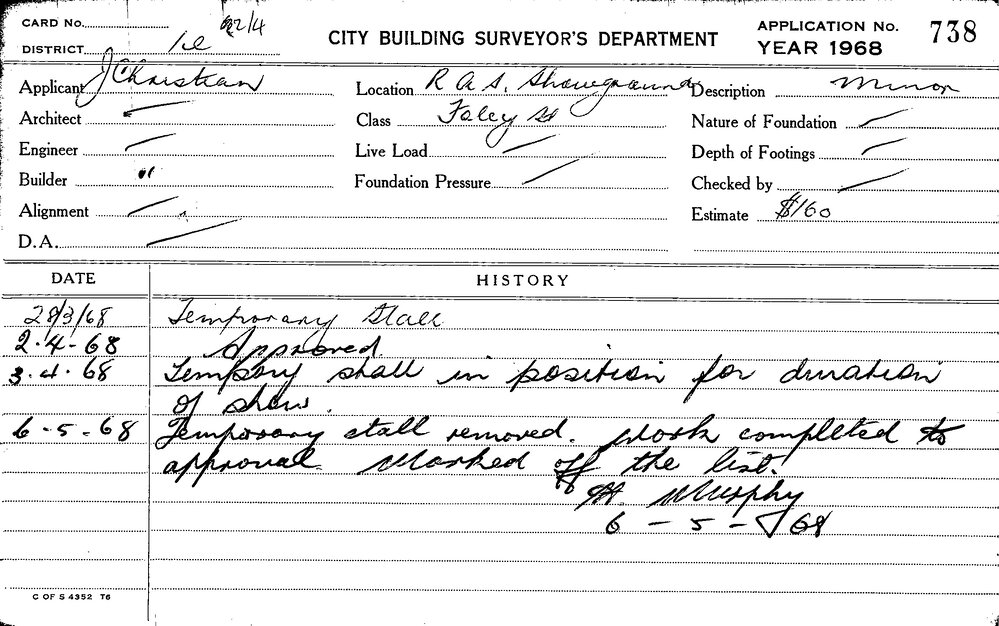 CARD No.
DISTRICT
CITY BUILDING SURVEYOR'S DEPARTMENT
APPLICATION No. 738
YEAR 1968
Applicant J Christian
Location R A S. Showground
Description Minor
Architect
Class Foley St
Nature of Foundation
Engineer
Live Load
Depth of Footings
Builder "
Foundation Pressure
Checked by
Alignment
Estimate $160
D.A.
DATE HISTORY
28/3/68 Temporary Stall
2.4-68 Approved.
3.4.68 Tempory stall in position for duration
of show.
6-5-68 Temporary stall removed. Work completed to
approval. Marked off the list.
Murphy
6-5-68
C OF S 4352 T6